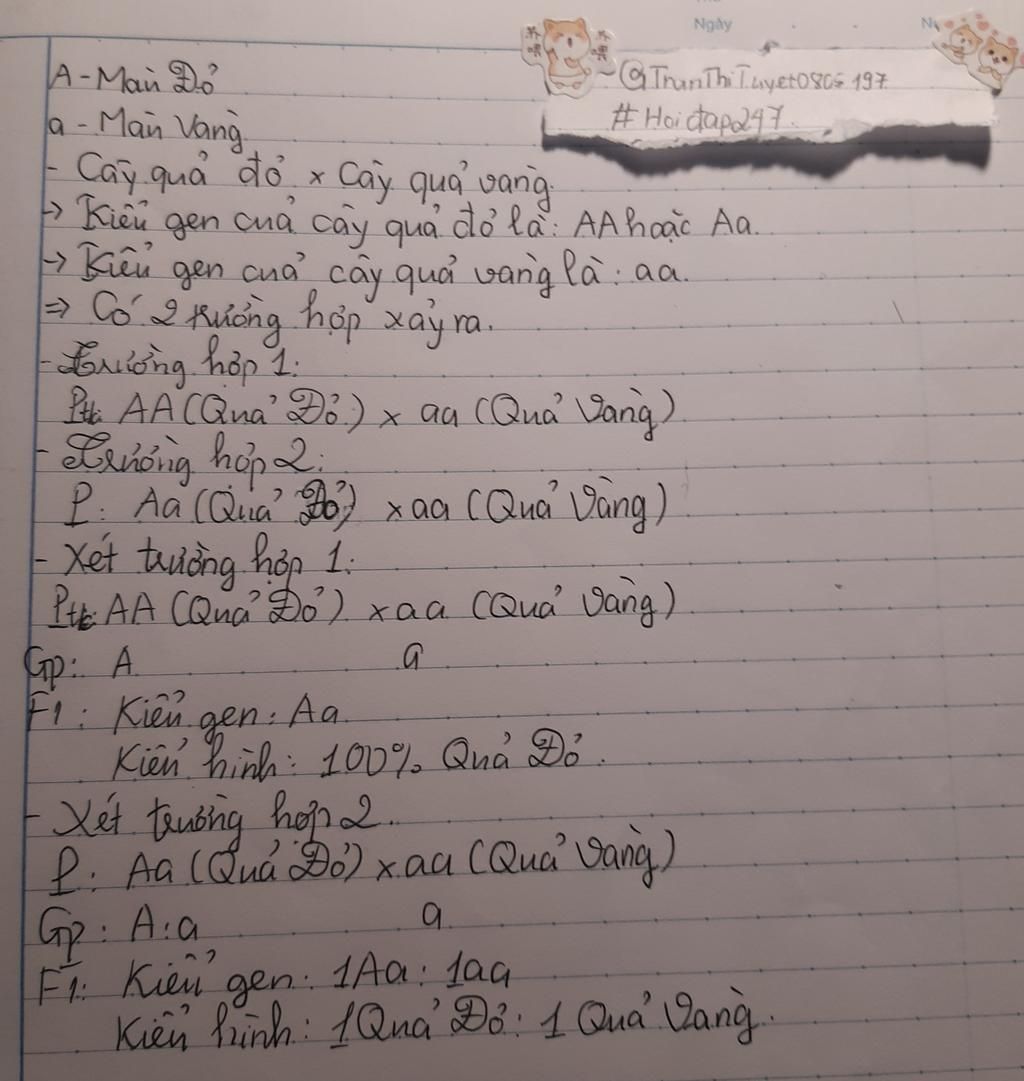 Ngày
~@TranThiTuyet0805197
#Hoidap247.
A - Màu Đỏ
a - Màu Vàng
- Cây quả đỏ x Cây quả vàng.
→ Kiểu gen của cây quả đỏ là: AA hoặc Aa.
→ Kiểu gen của cây quả vàng là: aa.
⇒ Có 2 trường hợp xảy ra.
- Trường hợp 1:
Ptc: AA (Quả Đỏ) x aa (Quả Vàng)
- Trường hợp 2:
P: Aa (Quả Đỏ) x aa (Quả Vàng)
- Xét trường hợp 1:
Ptc: AA (Quả Đỏ) x aa (Quả Vàng)
Gp: A a
F1: Kiểu gen: Aa
Kiểu hình: 100% Quả Đỏ.
- Xét trường hợp 2.
P: Aa (Quả Đỏ) x aa (Quả Vàng)
Gp: A:a a
F1: Kiểu gen: 1Aa: 1aa
Kiểu hình: 1 Quả Đỏ: 1 Quả Vàng.